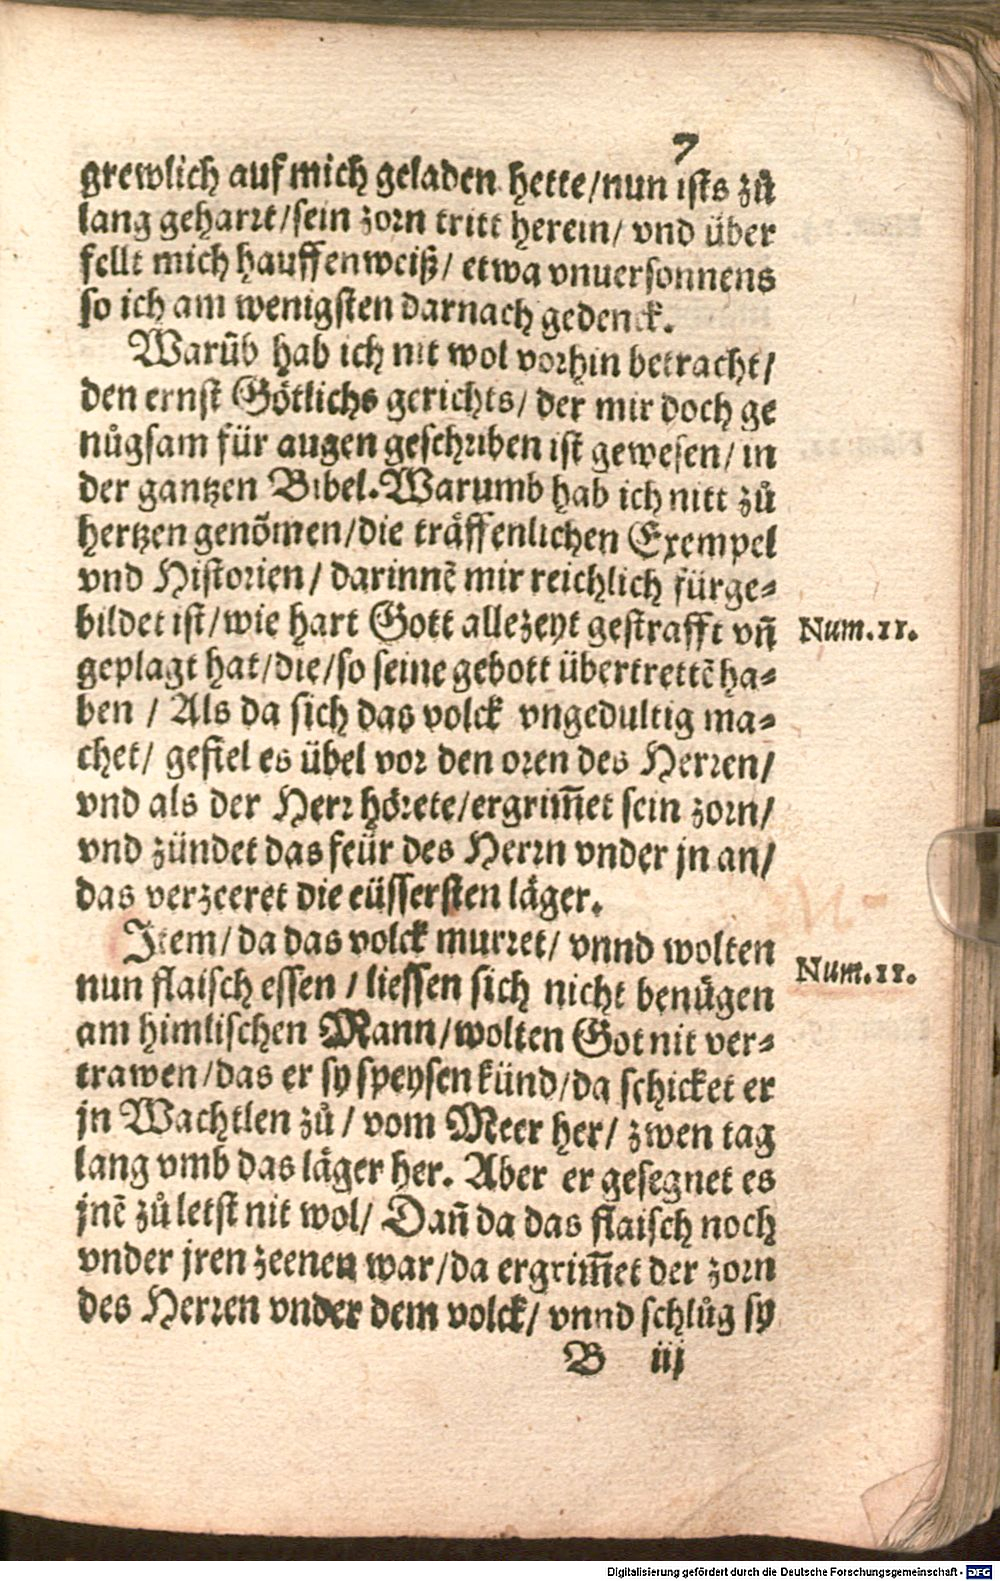 7
grewlich auf mich geladen hette/nun ists zů
lang geharrt/sein zorn tritt herein/ vnd über
fellt mich hauffenweiß/ etwa vnuersonnens
so ich am wenigsten darnach gedenck.
Warūb hab ich nit wol vorhin betracht/
den ernst Götlichs gerichts/ der mir doch ge
nůgsam für augen geschriben ist gewesen/ in
der gantzen Bibel. Warumb hab ich nitt zů
hertzen genōmen/die träffenlichen Exempel
vnd Historien/ darinnē mir reichlich fürge-
bildet ist/wie hart Gott allezeyt gestrafft vn̄
Num.11.
geplagt hat/die/so seine gebott übertrettē ha-
ben / Als da sich das volck vngedultig ma-
chet/ gefiel es übel vor den oren des Herren/
vnd als der Herr hörete/ergrim̄et sein zorn/
vnd zündet das feür des Herrn vnder jn an/
das verzeeret die eüssersten läger.
Item/ da das volck murret/ vnnd wolten
Num.11.
nun flaisch essen / liessen sich nicht benügen
am himlischen Mann/wolten Got nit ver-
trawen/das er sy speysen künd/da schicket er
jn Wachtlen zů/ vom Meer her/ zwen tag
lang vmb das läger her. Aber er gesegnet es
jnē zů letst nit wol/ Dan̄ da das flaisch noch
vnder jren zeenen war/da ergrim̄et der zorn
des Herren vnder dem volck/ vnnd schlůg sy
B iij
Digitalisierung gefördert durch die Deutsche Forschungsgemeinschaft - DFG